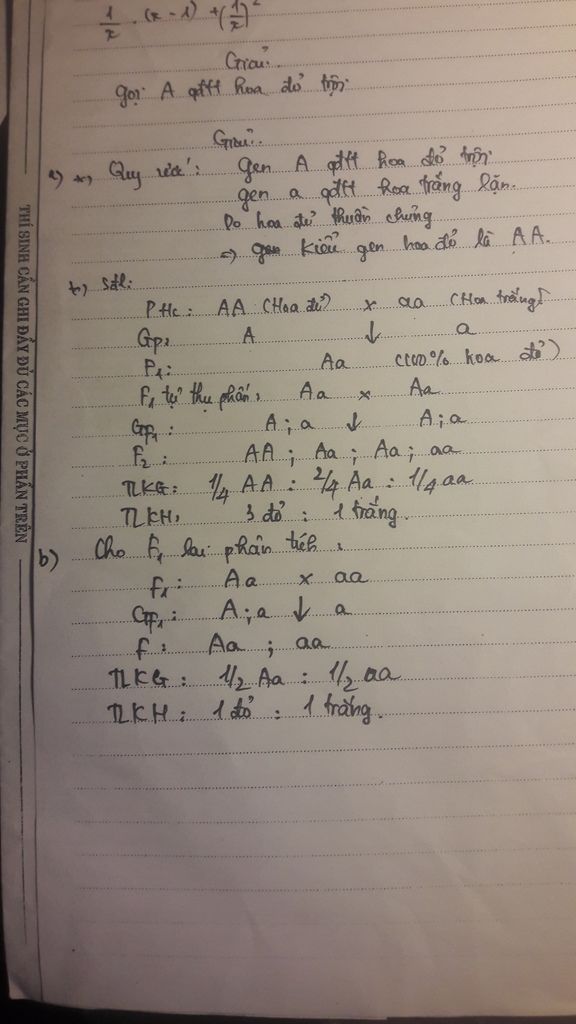 1/x . (x - 1) + (1/x)²
Giải:
gọi A qđtt hoa đỏ trội
Giải:
a) *, Quy ước: gen A qđtt hoa đỏ trội
gen a qđtt hoa trắng lặn.
Do hoa đỏ thuần chủng
=> kiểu gen hoa đỏ là AA.
*, Sđl:
Ptlc: AA (Hoa đỏ) x aa (Hoa trắng)
Gp: A ↓ a
F1: Aa (100% hoa đỏ)
F1 tự thụ phấn: Aa x Aa
GF1: A ; a ↓ A ; a
F2: AA ; Aa ; Aa ; aa
TLKG: 1/4 AA : 2/4 Aa : 1/4 aa
TLKH: 3 đỏ : 1 trắng.
b) Cho F1 lai phân tích:
F1: Aa x aa
GF1: A ; a ↓ a
F: Aa ; aa
TLKG: 1/2 Aa : 1/2 aa
TLKH: 1 đỏ : 1 trắng.
THÍ SINH CẦN GHI ĐẦY ĐỦ CÁC MỤC Ở PHẦN TRÊN